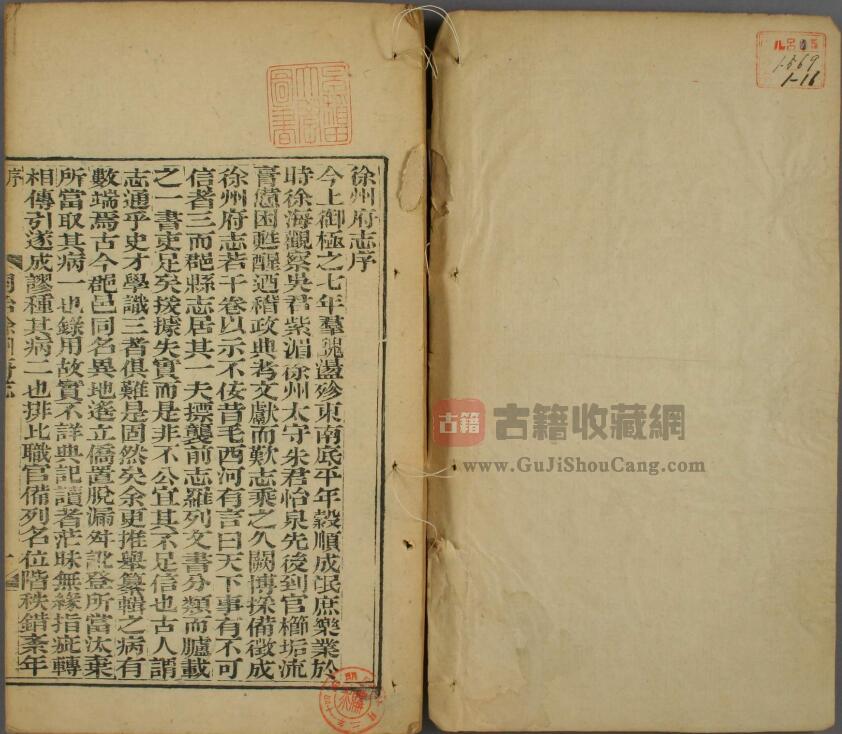 徐州府志序
今上御極之七年羣醜盪殄東南底平年穀順成氓庶樂業於
時徐海觀察吳君紫湄徐州太守朱君怡泉先後到官櫛垢流
膏憊困甦醒迺稽政典考文獻而歎志乘之久闕博採備徵成
徐州府志若干卷以示不佞昔毛西河有言曰天下事有不可
信者三而郡縣志居其一夫摽襲前志羅列文書分類而臚載
之一書吏足矣拔據失實而是非不公宜其不足信也古人謂
志通乎史才學識三者俱難是固然矣余更推舉纂輯之病有
數端焉古今郡邑同名異地遙立僑置脫漏舛訛登所當汰棄
所當取其病一也錄用故實不詳典記讀者茫昧無緣指疵轉
相傳引遂成謬種其病二也排比職官備列名位階秩錯紊年
序
同治徐州府志
一
1569
1-16
古籍
古籍收藏網
www.GuJiShouCang.com